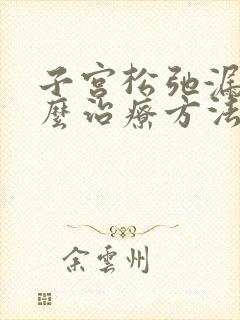 子宫松弛漏
麼治療方法
余雲州